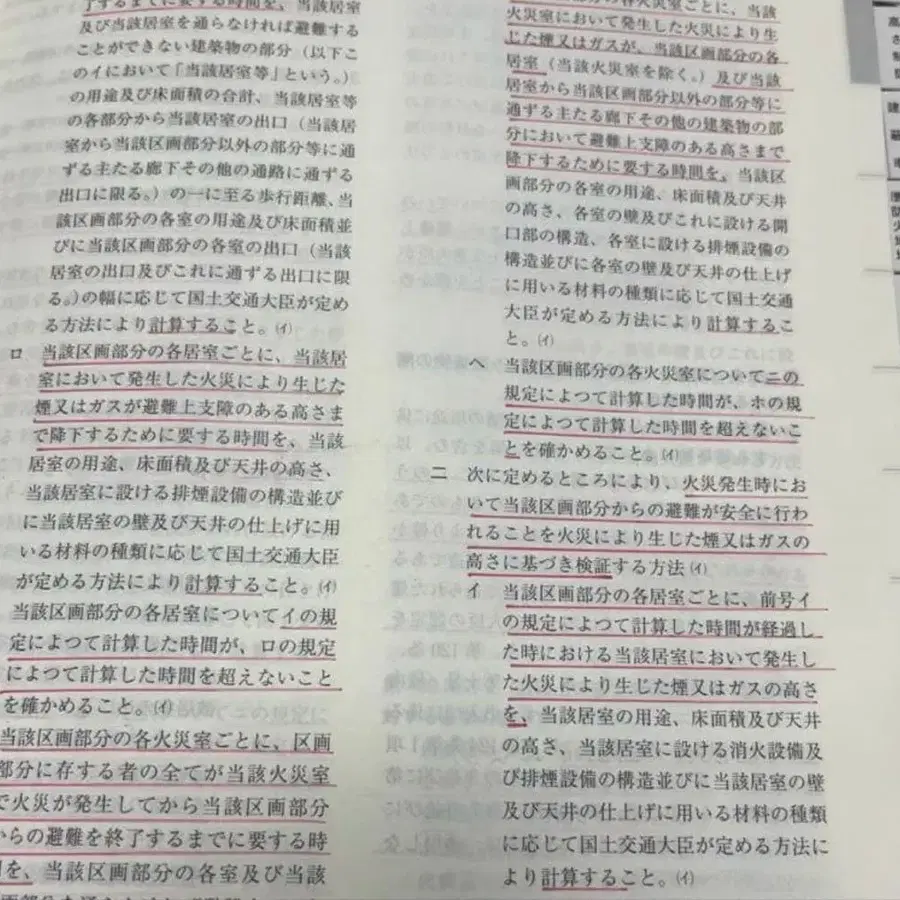 了するまでに要する時間を、当該居室
及び当該居室を通らなければ避難する
ことができない建築物の部分（以下こ
のイにおいて「当該居室等」という。）
の用途及び床面積の合計、当該居室等
の各部分から当該居室の出口（当該居
室から当該区画部分以外の部分等に通
ずる主たる廊下その他の通路に通ずる
出口に限る。）の一に至る歩行距離、当
該区画部分の各室の用途及び床面積並
びに当該区画部分の各室の出口（当該
居室の出口及びこれに通ずる出口に限
る。）の幅に応じて国土交通大臣が定め
る方法により計算すること。(イ)
ロ 当該区画部分の各居室ごとに、当該居
室において発生した火災により生じた
煙又はガスが避難上支障のある高さま
で降下するために要する時間を、当該
居室の用途、床面積及び天井の高さ、
当該居室に設ける排煙設備の構造並び
に当該居室の壁及び天井の仕上げに用
いる材料の種類に応じて国土交通大臣
が定める方法により計算すること。(イ)
当該区画部分の各居室についてイの規
定によつて計算した時間が、ロの規定
によつて計算した時間を超えないこと
を確かめること。(イ)
当該区画部分の各火災室ごとに、区画
部分に存する者の全てが当該火災室
で火災が発生してから当該区画部分
からの避難を終了するまでに要する時
間を、当該区画部分の各室及び当該
区画部分
当該区画部分の各火災室ごとに、当該
火災室において発生した火災により生
じた煙又はガスが、当該区画部分の各
居室（当該火災室を除く。）及び当該
居室から当該区画部分以外の部分等に
通ずる主たる廊下その他の建築物の部
分において避難上支障のある高さまで
降下するために要する時間を、当該区
画部分の各室の用途、床面積及び天井
の高さ、各室の壁及びこれに設ける開
口部の構造、各室に設ける排煙設備の
構造並びに各室の壁及び天井の仕上げ
に用いる材料の種類に応じて国土交通
大臣が定める方法により計算するこ
と。(イ)
ヘ 当該区画部分の各火災室についてニの
規定によつて計算した時間が、ホの規
定によつて計算した時間を超えないこ
とを確かめること。(イ)
二 次に定めるところにより、火災発生時にお
いて当該区画部分からの避難が安全に行わ
れることを火災により生じた煙又はガスの
高さに基づき検証する方法(イ)
イ 当該区画部分の各居室ごとに、前号イ
の規定によつて計算した時間が経過し
た時における当該居室において発生し
た火災により生じた煙又はガスの高さ
を、当該居室の用途、床面積及び天井
の高さ、当該居室に設ける消火設備及
び排煙設備の構造並びに当該居室の壁
及び天井の仕上げに用いる材料の種類
に応じて国土交通大臣が定める方法に
より計算すること。(イ)
高
さ
制
建
蔽
率
防
火
地